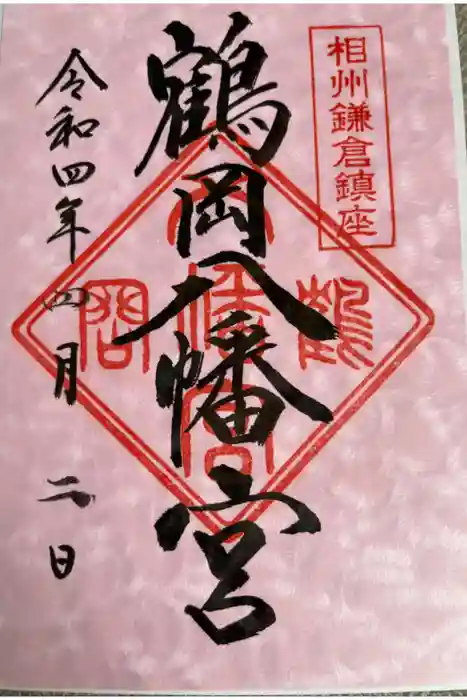 相州鎌倉鎮座
鶴岡八幡宮
令和四年四月二日